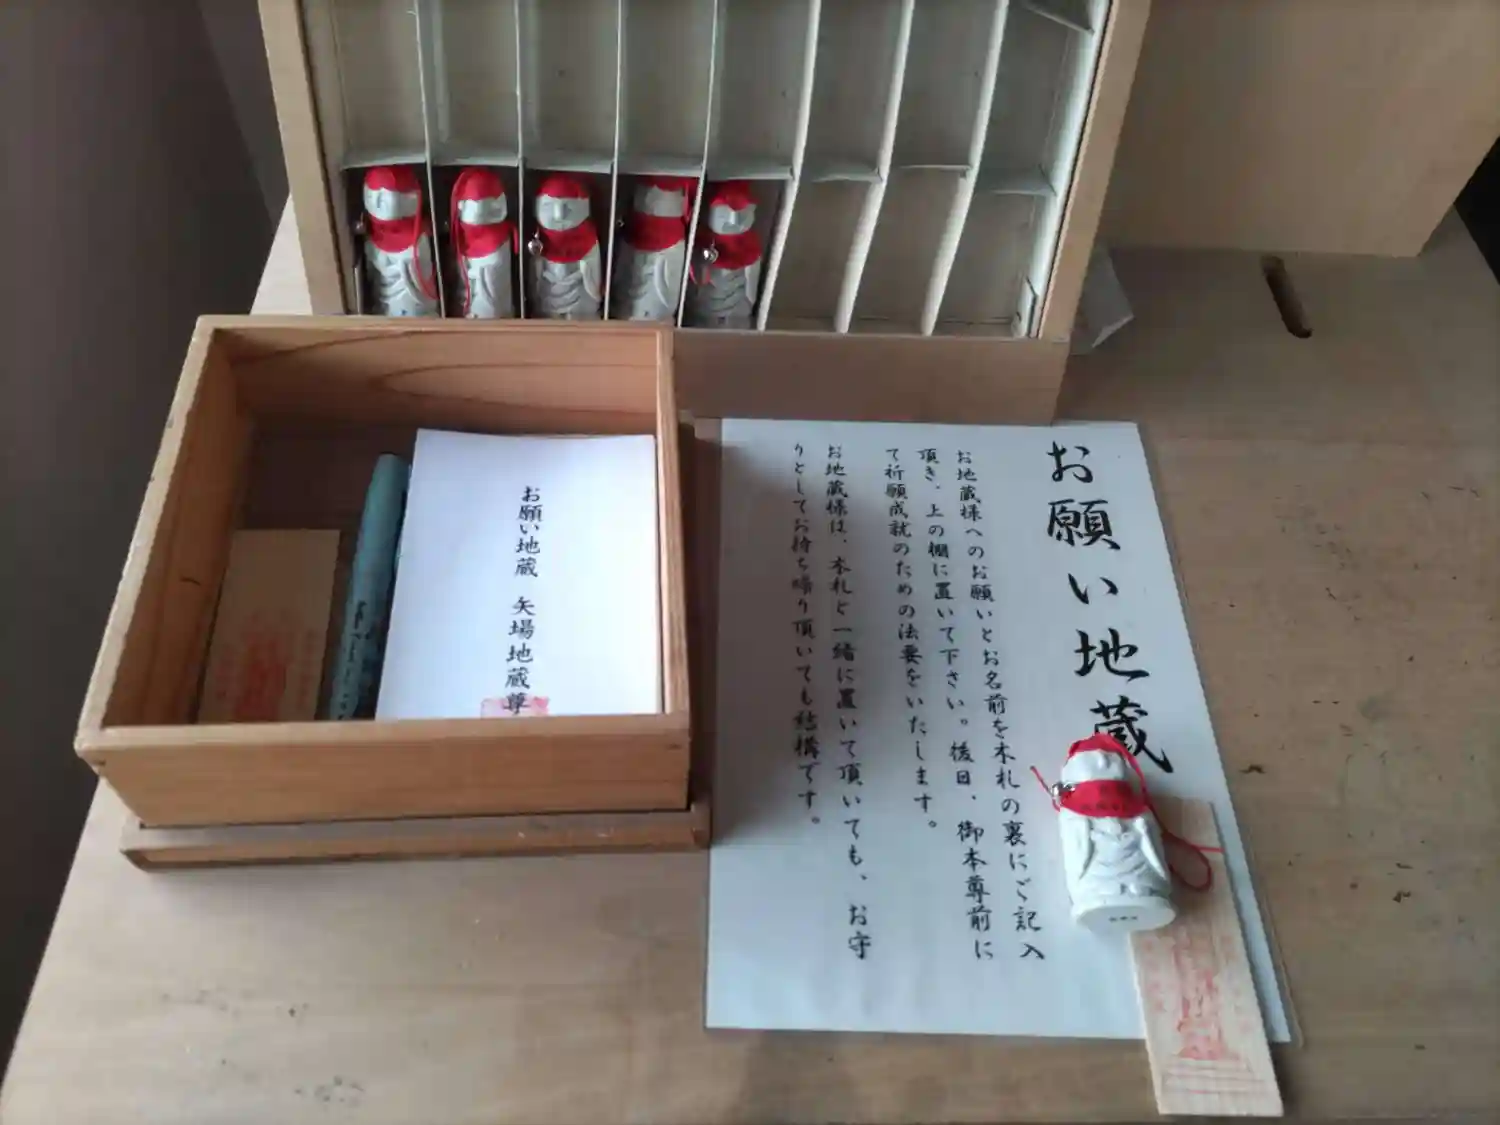 お願い地蔵
お地蔵様へのお願いとお名前を木札の裏にご記入
頂き、上の棚に置いて下さい。後日、御本尊前に
て祈願成就のための法要をいたします。
お地蔵様は、木札と一緒に置いて頂いても、お守
りとしてお持ち帰り頂いても結構です。
お願い地蔵 矢場地蔵尊